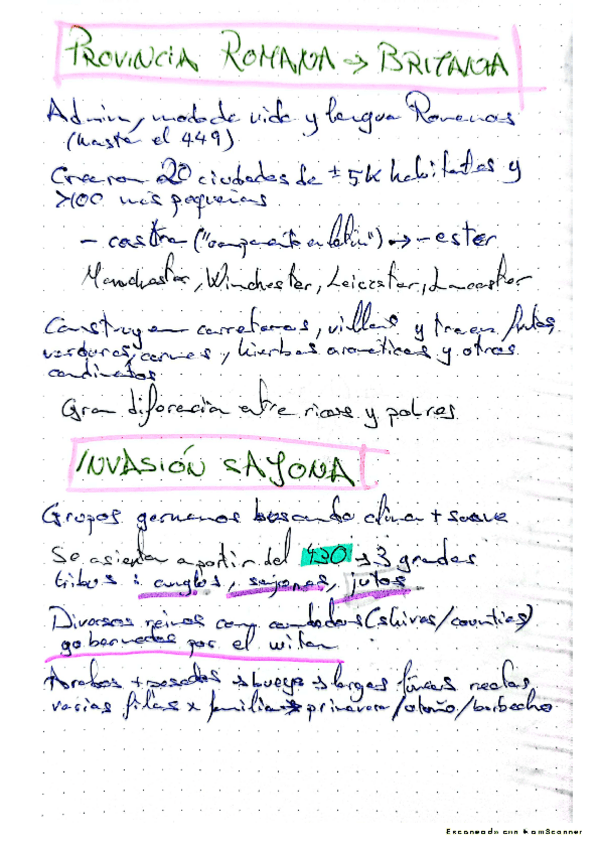 PROVINCIA ROMANA → BRITANIA
Admin, modo de vida y lengua Romanos
(hasta el 449)
Crearon 20 ciudades de ± 5K habitantes y
>100 más pequeñas
- castra ("campamento en latín") → -ester
Manchester, Winchester, Leicester, Lancaster
Construyen carreteras, villas y traen frutas,
verduras, carnes, hierbas aromáticas y otros
condimentos
Gran diferencia entre ricos y pobres
INVASIÓN SAJONA
Grupos germanos buscando clima + suave
Se asientan a partir del 430 → 3 grandes
tribus: anglos, sajones, jutos
Diversos reinos con condados (shires/counties)
gobernados por el witan
Arabos + pesados → bueyes → largas líneas rectas
varias filas x familia → primavera/otoño/barbecho
Escaneado con CamScanner